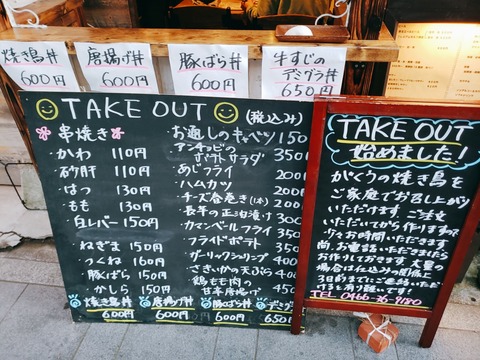 焼き鳥丼
600円
唐揚げ丼
600円
豚ばら丼
600円
牛すじの
デミグラ丼
650円
TAKE OUT
(税込み)
串焼き
かわ 110円
砂肝 110円
はつ 130円
もも 130円
白レバー 150円
ねぎま 150円
つくね 160円
豚ばら 150円
かしら 150円
お通しのキャベツ 150
アンチョビの
ポテトサラダ 350
あじフライ 200
ハムカツ 200
チーズ春巻き(1本) 200
長芋の正油漬け 300
カマンベールフライ
フライドポテト
ガーリックシュリンプ
さきいかの天ぷら
鶏もも肉の
甘辛唐揚げ 450
焼き鳥丼
600
唐揚げ丼
600
豚ばら丼
600
デミグラ
650
TAKE OUT
始めました!
がくうの焼き鳥を
ご家庭でお召し上がり
いただけます。ご注文
いただいてから作りますので
少々お時間いただきます
尚、お電話いただきましたら
お作りしておきます。大量の
場合は仕込みの関係上
3日前までにご連絡いただ
けると有り難いです!
TEL 0466-36-9180